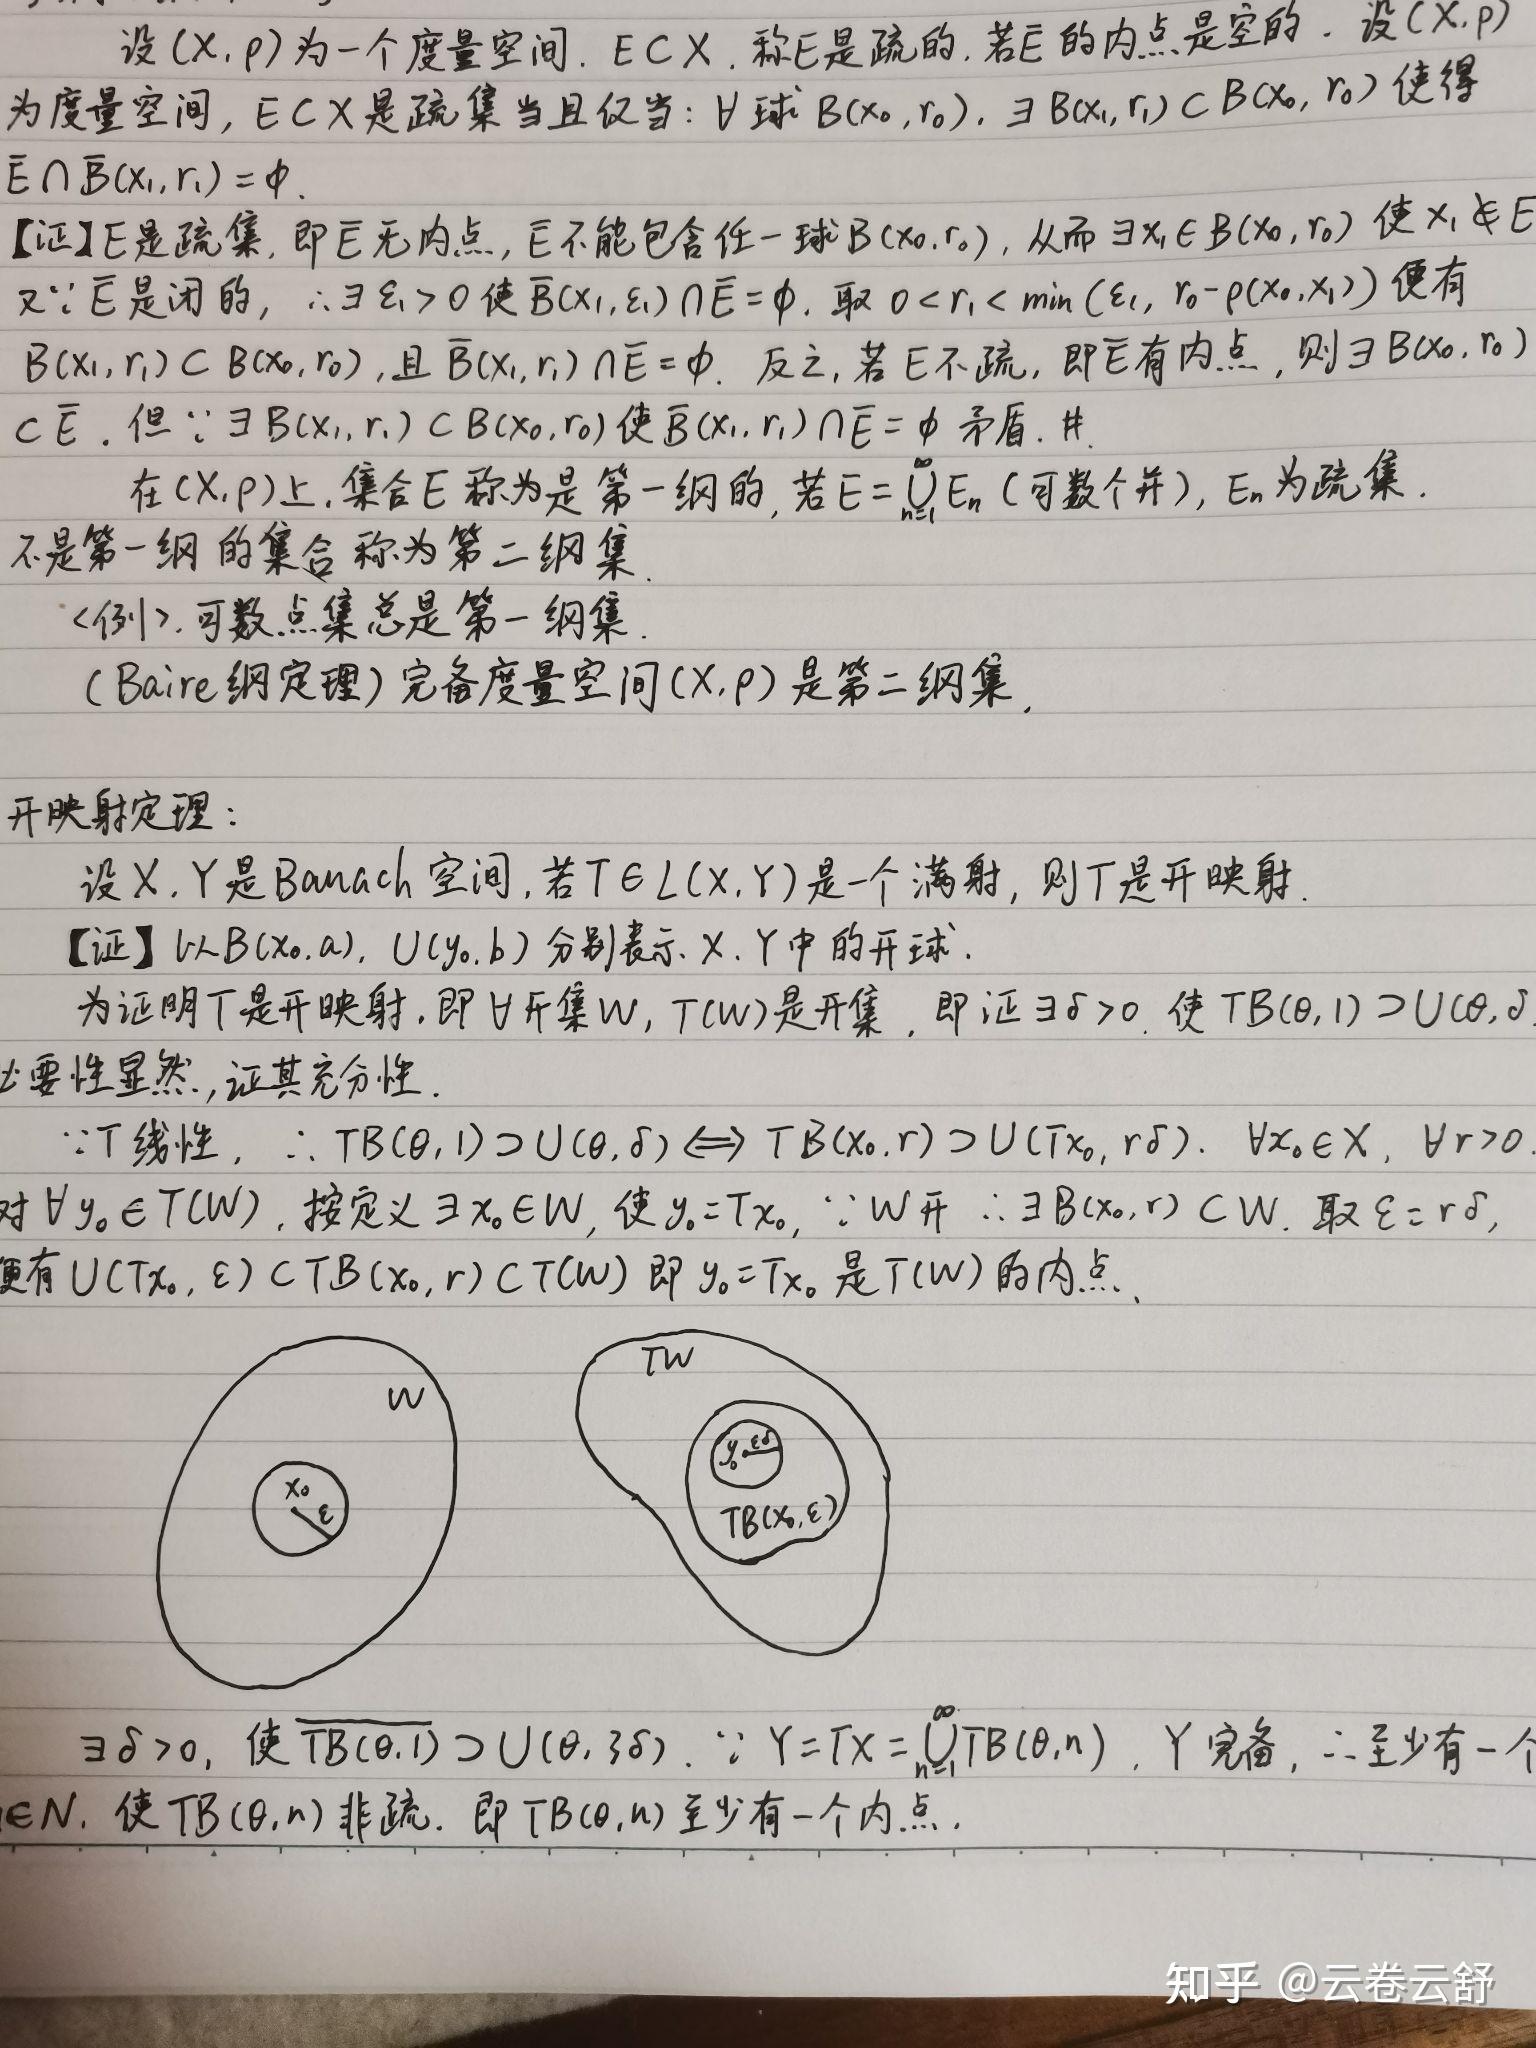 设(X,ρ)为一个度量空间. E⊂X. 称E是疏的, 若Ē的内点是空的. 设(X,ρ)
为度量空间, E⊂X是疏集当且仅当: ∀球B(x₀,r₀), ∃B(x₁,r₁)⊂B(x₀,r₀)使得
Ē∩B̄(x₁,r₁)=ϕ.
【证】E是疏集, 即Ē无内点, Ē不能包含任一球B(x₀,r₀), 从而∃x₁∈B(x₀,r₀)使x₁∉Ē
又∵Ē是闭的, ∴∃ε₁>0使B̄(x₁,ε₁)∩Ē=ϕ. 取0<r₁<min(ε₁, r₀-ρ(x₀,x₁))便有
B(x₁,r₁)⊂B(x₀,r₀), 且B̄(x₁,r₁)∩Ē=ϕ. 反之, 若E不疏, 即Ē有内点, 则∃B(x₀,r₀)
⊂Ē. 但∵∃B(x₁,r₁)⊂B(x₀,r₀)使B̄(x₁,r₁)∩Ē=ϕ矛盾. #.
在(X,ρ)上, 集合E称为是第一纲的, 若E=⋃_{n=1}^∞ Eₙ(可数个并), Eₙ为疏集.
不是第一纲的集合称为第二纲集.
<例>. 可数点集总是第一纲集.
(Baire纲定理)完备度量空间(X,ρ)是第二纲集.
开映射定理:
设X, Y是Banach空间, 若T∈L(X,Y)是一个满射, 则T是开映射.
【证】以B(x₀,a), U(y₀,b)分别表示X, Y中的开球.
为证明T是开映射, 即∀开集W, T(W)是开集, 即证∃δ>0, 使TB(θ,1)⊃U(θ,δ
必要性显然, 证其充分性.
∵T线性, ∴TB(θ,1)⊃U(θ,δ)⟺TB(x₀,r)⊃U(Tx₀,rδ). ∀x₀∈X, ∀r>0.
对∀y₀∈T(W), 按定义∃x₀∈W, 使y₀=Tx₀, ∵W开∴∃B(x₀,r)⊂W. 取ε=rδ,
便有U(Tx₀,ε)⊂TB(x₀,r)⊂T(W)即y₀=Tx₀是T(W)的内点.
W
x₀
ε
TW
y₀ εδ
TB(x₀,ε)
∃δ>0, 使\overline{TB(θ,1)}⊃U(θ,3δ). ∵Y=TX=⋃_{n=1}^∞ TB(θ,n). Y完备, ∴至少有一个
∈N. 使TB(θ,n)非疏. 即TB(θ,n)至少有一个内点.
知乎 @云卷云舒